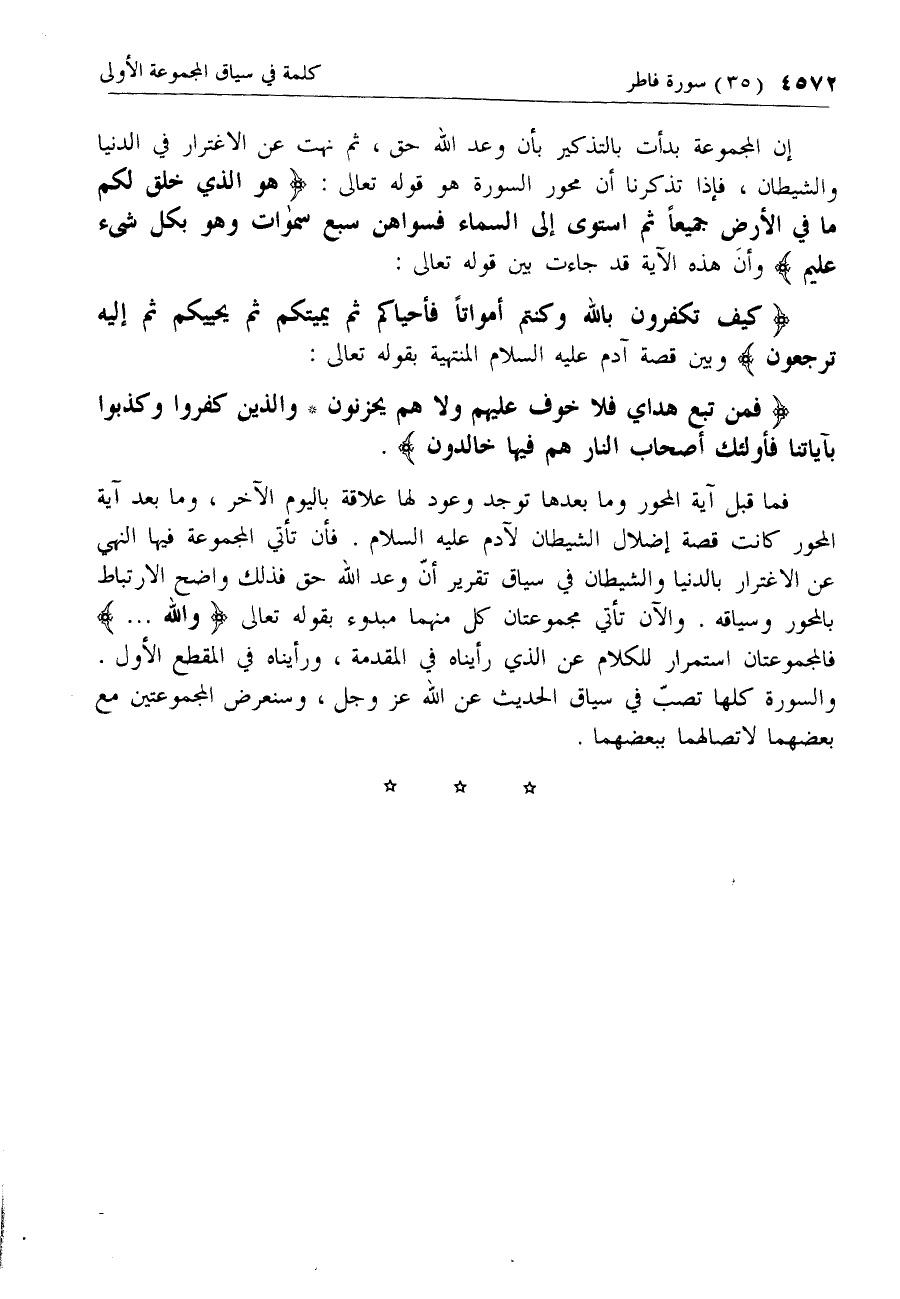 ٤٥٧٢ (٣٥) سورة فاطر كلمة في سياق المجموعة الأولى
إن المجموعة بدأت بالتذكير بأن وعد الله حق ، ثم نهت عن الاغترار في الدنيا
والشيطان ، فإذا تذكرنا أن محور السورة هو قوله تعالى : ﴿ هو الذي خلق لكم
ما في الأرض جميعاً ثم استوى إلى السماء فسواهن سبع سمٰوات وهو بكل شىء
عليم ﴾ وأنَ هذه الآية قد جاءت بين قوله تعالى :
﴿ كيف تكفرون بالله وكنتم أمواتاً فأحياكم ثم يميتكم ثم يحييكم ثم إليه
ترجعون ﴾ وبين قصة آدم عليه السلام المنتهية بقوله تعالى :
﴿ فمن تبع هداي فلا خوف عليهم ولا هم يحزنون * والذين كفروا وكذبوا
بآياتنا فأولئك أصحاب النار هم فيها خالدون ﴾ .
فما قبل آية المحور وما بعدها توجد وعود لها علاقة باليوم الآخر ، وما بعد آية
المحور كانت قصة إضلال الشيطان لآدم عليه السلام . فأن تأتي المجموعة فيها النهي
عن الاغترار بالدنيا والشيطان في سياق تقرير أنّ وعد الله حق فذلك واضح الارتباط
بالمحور وسياقه . والآن تأتي مجموعتان كل منهما مبدوء بقوله تعالى ﴿ والله ... ﴾
فالمجموعتان استمرار للكلام عن الذي رأيناه في المقدمة ، ورأيناه في المقطع الأول .
والسورة كلها تصبّ في سياق الحديث عن الله عز وجل ، وسنعرض المجموعتين مع
بعضهما لاتصالهما ببعضهما .
☆ ☆ ☆